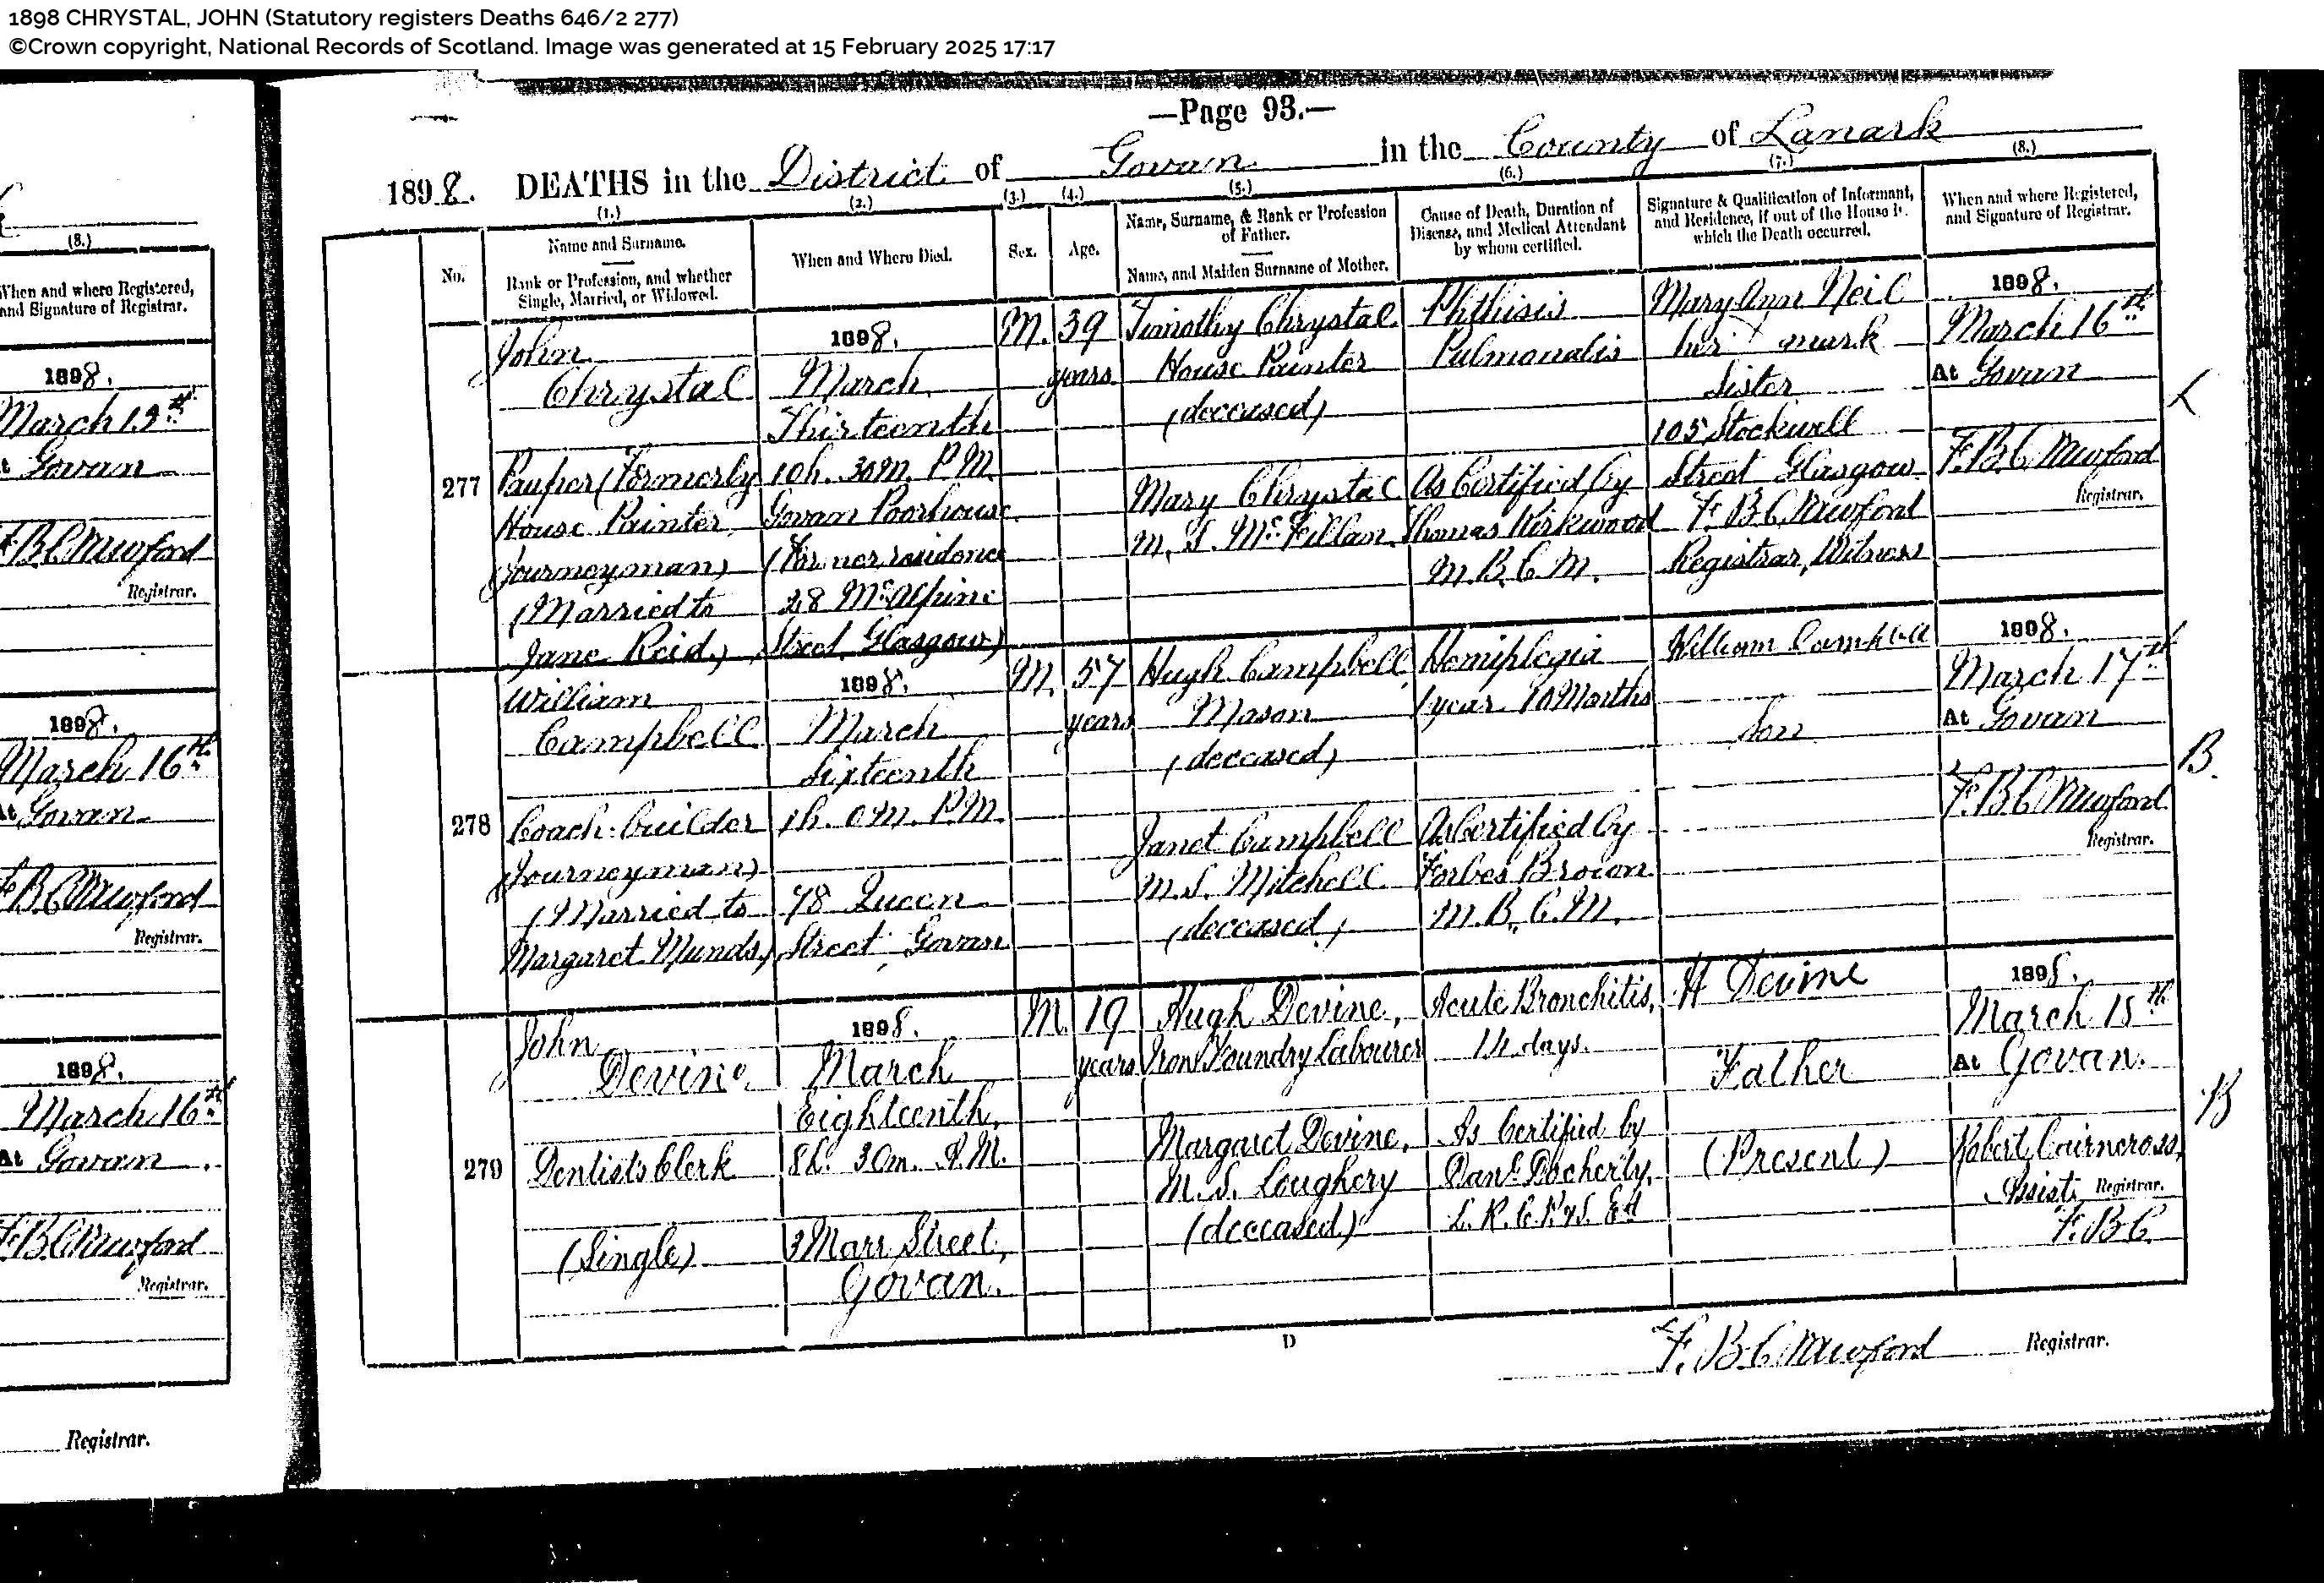 1898 CHRYSTAL, JOHN (Statutory registers Deaths 646/2 277)
©Crown copyright, National Records of Scotland. Image was generated at 15 February 2025 17:17
(8.)
When and where Registered,
and Signature of Registrar.
1898.
March 15th
At Govan
F. B. Crawford
Registrar.
1898.
March 16th
At Govan
F. B. Crawford
Registrar.
1898.
March 16th
At Govan
F. B. Crawford
Registrar.
Registrar.
—Page 93.—
1898. DEATHS in the District of Govan in the County of Lanark
No.
(1.)
Name and Surname.
Rank or Profession, and whether
Single, Married, or Widowed.
(2.)
When and Where Died.
(3.)
Sex.
(4.)
Age.
(5.)
Name, Surname, & Rank or Profession
of Father.
Name, and Maiden Surname of Mother.
(6.)
Cause of Death, Duration of
Disease, and Medical Attendant
by whom certified.
(7.)
Signature & Qualification of Informant,
and Residence, if out of the House in
which the Death occurred.
(8.)
When and where Registered,
and Signature of Registrar.
277
John
Chrystal
Pauper (Formerly
House Painter
Journeyman)
(Married to
Jane Reid)
1898.
March
Thirteenth
10h. 30m. P.M.
Govan Poorhouse
(Former residence
28 McAlpine
Street, Glasgow)
M.
39
years
Timothy Chrystal
House Painter
(deceased)
Mary Chrystal
M. S. McFillan
Phthisis
Pulmonalis
As Certified by
Thomas Kirkwood
M. B. C. M.
Mary Ann Neil
her x mark
Sister
105 Stockwell
Street Glasgow
F. B. Crawford
Registrar, Witness
1898.
March 16th
At Govan
F. B. Crawford
Registrar.
L
278
William
Campbell
Coach-builder
(Journeyman)
(Married to
Margaret Munds)
1898.
March
Sixteenth
1h. 0m. P.M.
78 Queen
Street, Govan
M.
57
years
Hugh Campbell
Mason
(deceased)
Janet Campbell
M. S. Mitchell
(deceased)
Hemiplegia
1 year 10 Months
As Certified by
Forbes Brown
M. B. C. M.
William Campbell
Son
1898.
March 17th
At Govan
F. B. Crawford
Registrar.
B.
279
John
Devine
Dentists Clerk
(Single)
1898.
March
Eighteenth,
8h. 30m. A.M.
3 Marr Street,
Govan.
M.
19
years
Hugh Devine,
Iron Foundry Labourer
Margaret Devine,
M. S. Loughery
(deceased)
Acute Bronchitis,
14 days.
As Certified by
Danl. Docherty,
L. R. C. P. & S. Ed
H Devine
Father
(Present)
1898.
March 18th
At Govan.
Robert Cairncross,
Assist. Registrar.
F. B. C.
B
D
F. B. Crawford Registrar.